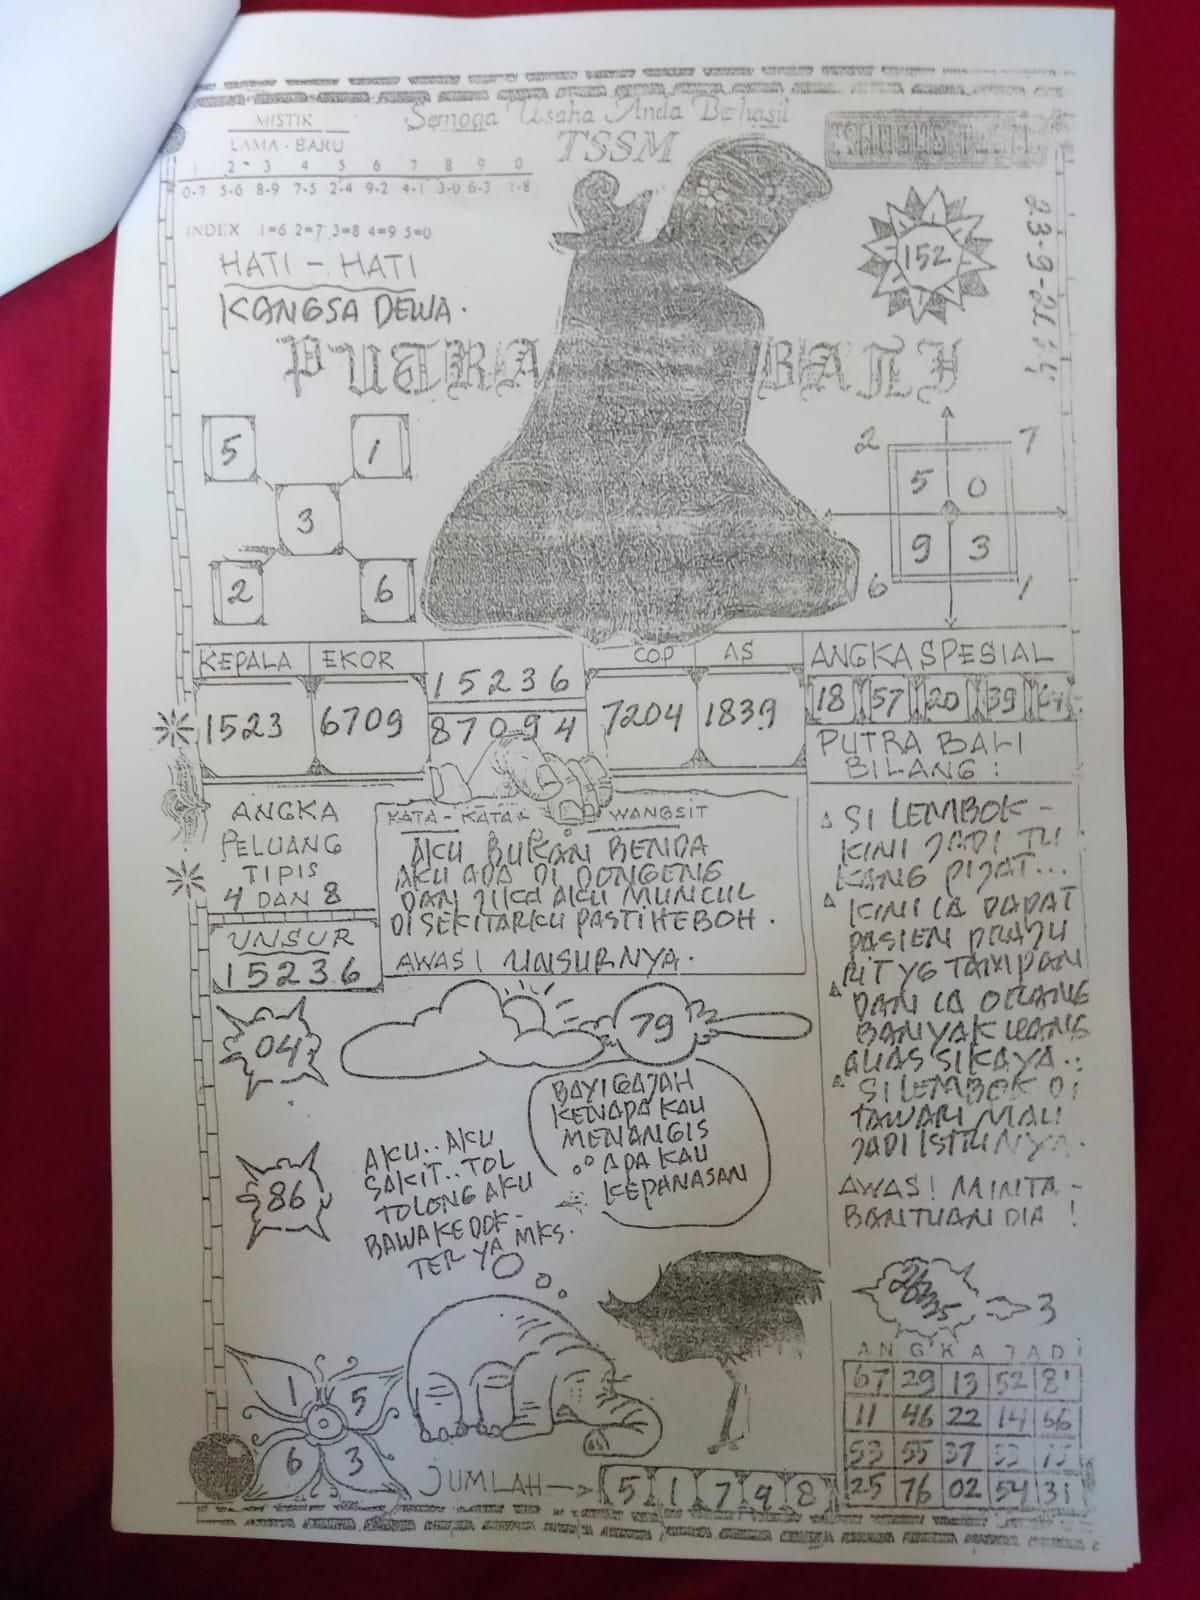 MISTIK
LAMA - BARU
1 2 3 4 5 6 7 8 9 0
0-7 5-6 8-9 7-5 2-4 9-2 4-1 3-0 6-3 1-8
INDEX 1=6 2=7 3=8 4=9 5=0
HATI - HATI
KANGSA DEWA.
Semoga Usaha Anda Berhasil
TSSM
152
PUTRA BALI
5 1
3
2 6
2 7
5 0
9 3
6 1
KEPALA EKOR
1523 6709
15236
87094
COP AS
7204 1839
ANGKA SPESIAL
18 57 20 39
PUTRA BALI
BILANG :
ANGKA
PELUANG
TIPIS
4 DAN 8
UNSUR
15236
KATA - KATA WANGSIT
AKU BUKAN BENDA
AKU ADA DI DONGENG
DAN JIKA AKU MUNCUL
DI SEKITARKU PASTI HEBOH.
AWAS! UNSURNYA.
SI LEMBOK -
KINI JADI TU
KANG PIJAT...
KINI IA DAPAT
PASIEN PRAJU
RIT YG TAMPAN
DAN IA ORANG
BANYAK UANG
ALIAS SI KAYA..
SI LEMBOK DI
TAWARI MAU
JADI ISTRINYA.
AWAS! MINTA -
BANTUAN DIA !
04
79
86
BAYI GAJAH
KENAPA KAU
MENANGIS
APA KAU
KEPANASAN
AKU.. AKU
SAKIT.. TOL
TOLONG AKU
BAWA KE DOK-
TER YA MKS.
3
ANGKA JADI
67 29 13 52
11 46 22 14 66
53 55 37
25 76 02 54 31
1 5
6 3
JUMLAH 5 1 7 9 8